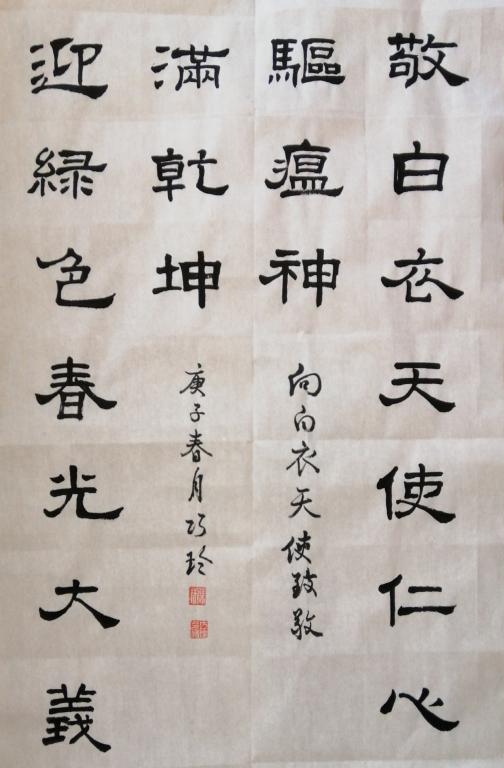 敬白衣天使仁心
驅瘟神
向白衣天使致敬
迎緑色春光大義
滿乾坤
庚子春月巧玲